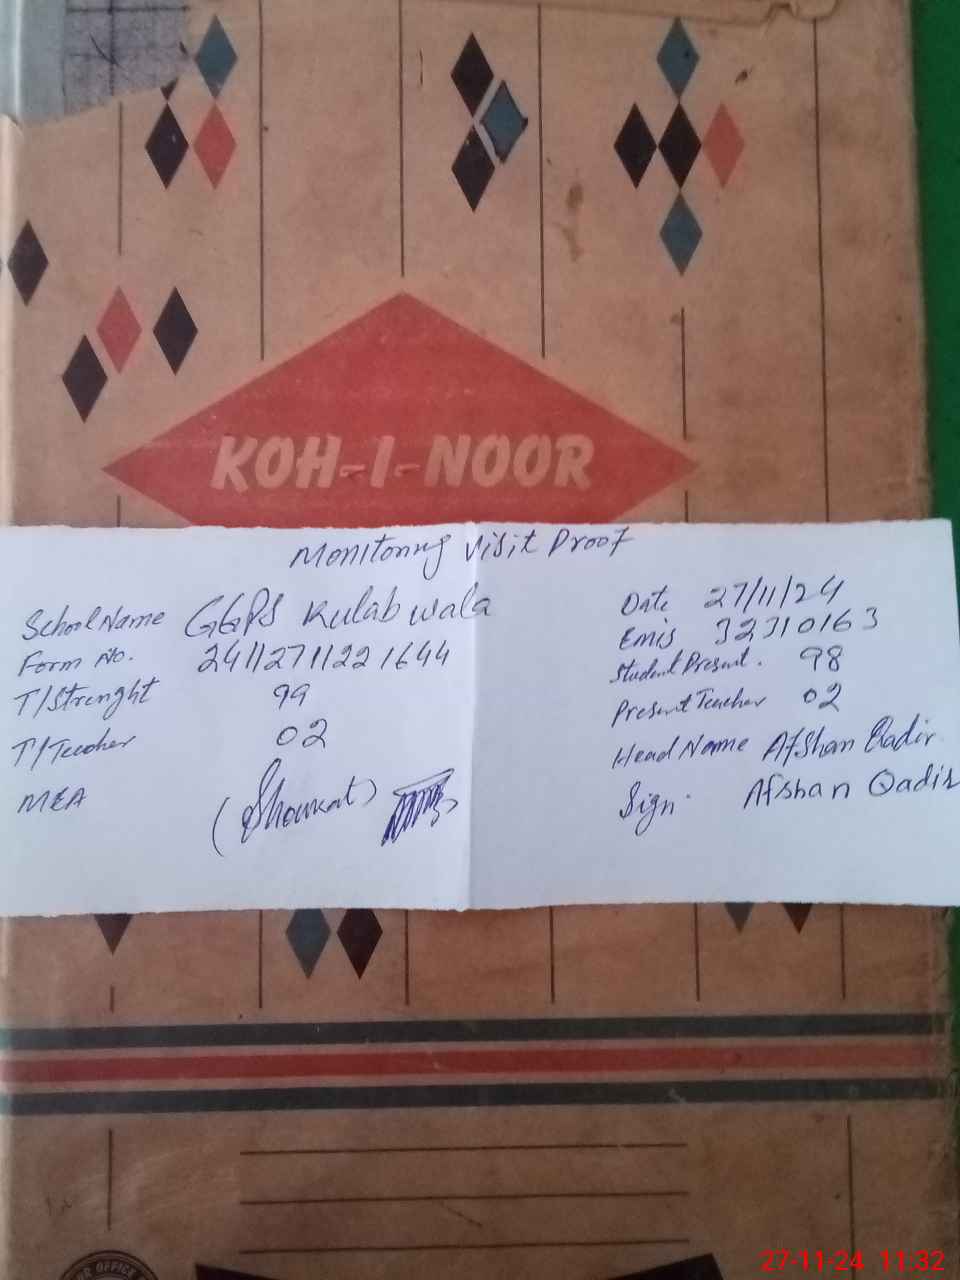 KOH-I-NOOR
Monitoring Visit Proof
School Name GGPS Kulab wala
Form No. 24112711221644
T/Strenght 99
T/Teacher 02
MEA (Shoukat)
Date 27/11/24
Emis 32310163
Student Present. 98
Present Teacher 02
Head Name Afshan Qadir
Sign. Afshan Qadir
OR OFFICE
27-11-24 11:32